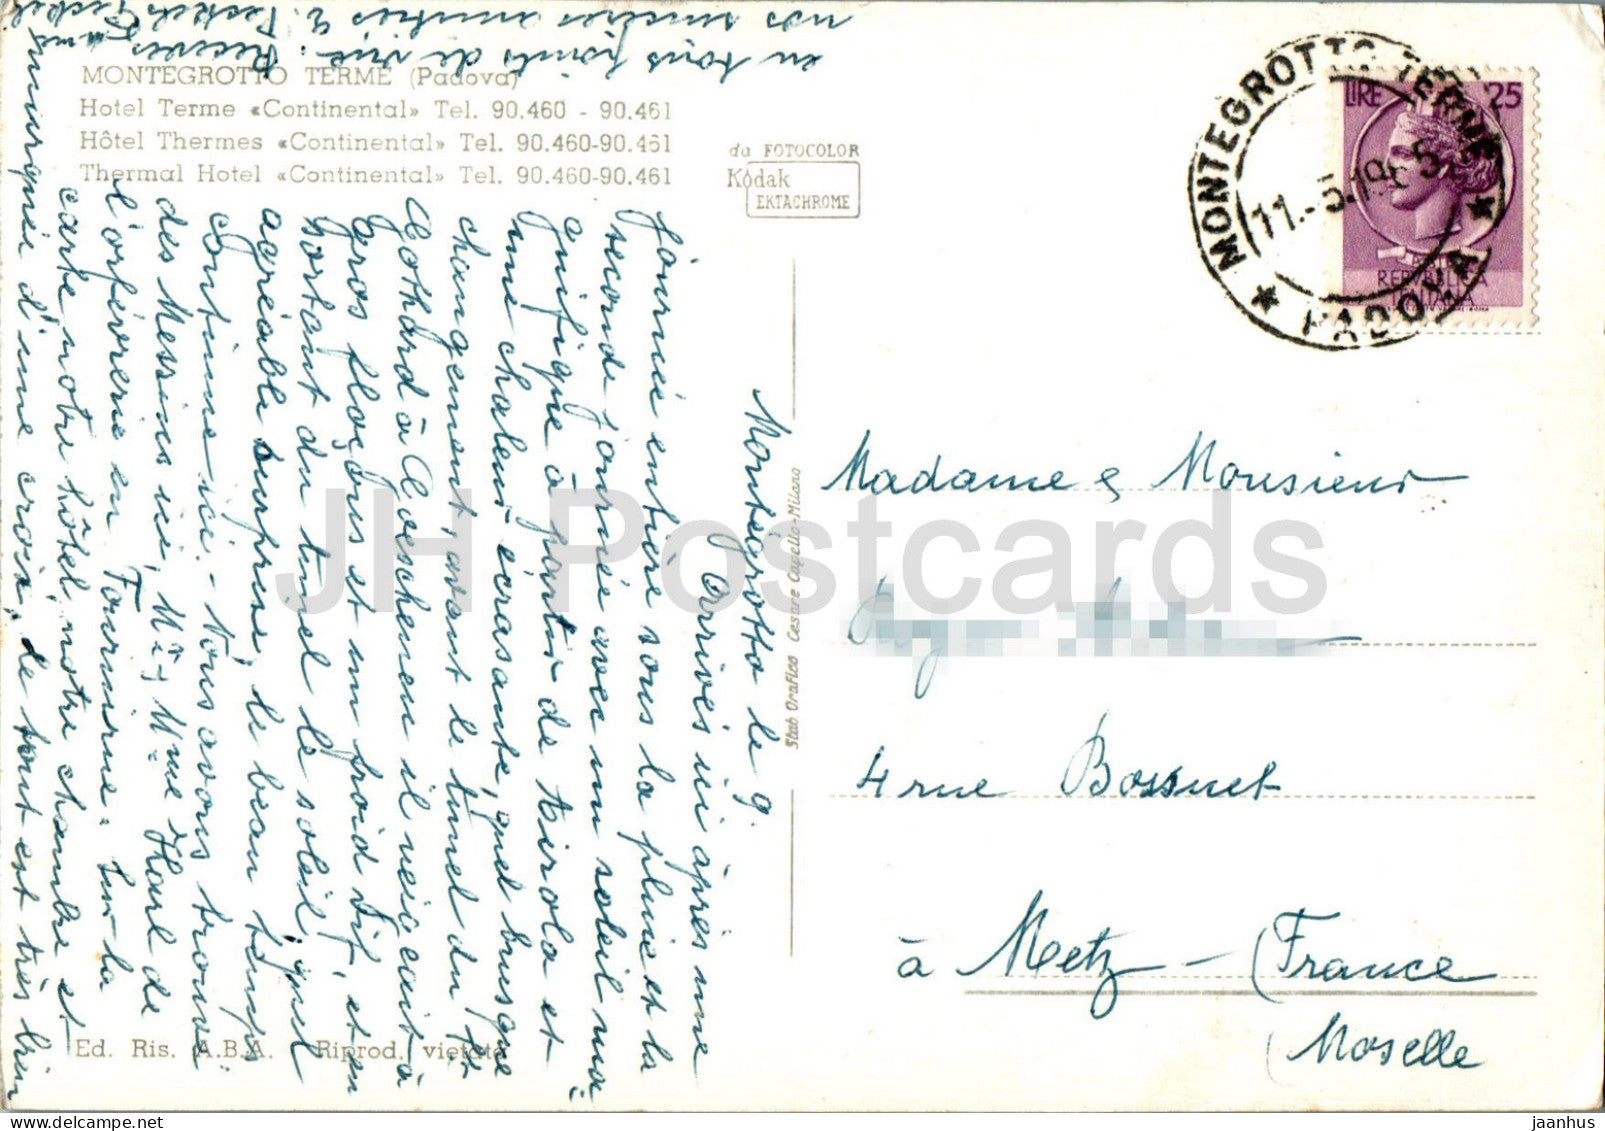 MONTEGROTTO TERME (Padova)
Hotel Terme «Continental» Tel. 90.460 - 90.461
Hôtel Thermes «Continental» Tel. 90.460-90.461
Thermal Hotel «Continental» Tel. 90.460-90.461
da FOTOCOLOR
Kodak
EKTACHROME
MONTEGROTTO TERME
11.-5.19
PADOVA
LIRE 25
POSTE
REPVBBLICA
ITALIANA
Montégrotto le 9.
Arrivés ici après une
journée entière sous la pluie et la
seconde journée avec un soleil ma-
gnifique à partir de Airola et
une chaleur écrasante, quel brusque
changement, avant le tunnel du St
Gothard à Goeschenen il neigeait à
gros flocons et un froid dit, et en
sortant du tunnel le soleil, quel
agréable surprise, le beau temps
continue ici. - Nous avons trouvé
des Messins ici, Mr et Mme Harl de
l'orfévrerie en Fournirue. Sur la
carte notre hôtel, notre chambre est
marquée d'une croix, de tout est très bien
en tous points de vue. Recevez
nos sincères amitiés
Madame & Monsieur
4 rue Bossuet
à Metz - (France
Moselle
Stab. Grafico Cesare Capello-Milano
Ed. Ris. A.B.A. Riprod. vietata
JH Postcards
jaanhus